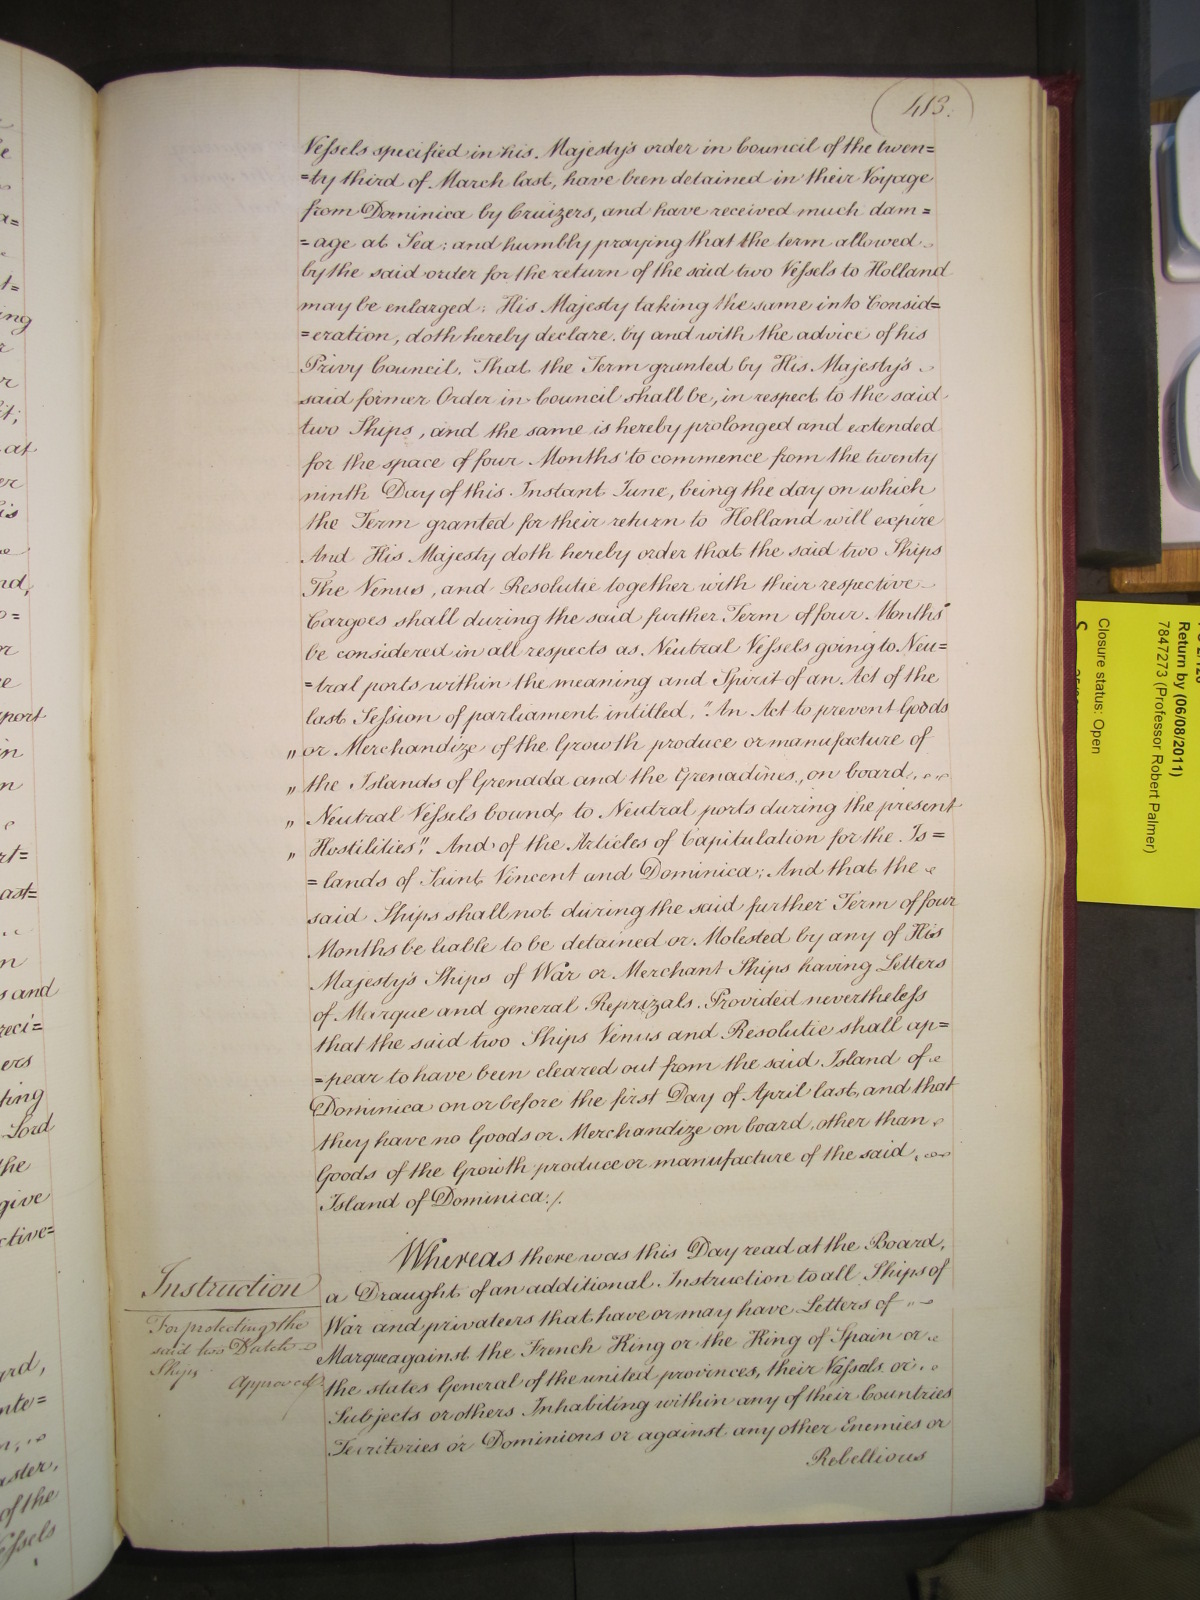 413.
Vessels specified in his Majesty's order in Council of the twen=
=ty third of March last, have been detained in their Voyage
from Dominica by Cruizers, and have received much dam=
=age at Sea; and humbly praying that the term allowed
by the said order for the return of the said two Vessels to Holland
may be enlarged; His Majesty taking the same into Consid=
=eration, doth hereby declare by and with the advice of his
Privy Council, That the Term granted by His Majesty's
said former Order in Council shall be, in respect to the said
two Ships, and the same is hereby prolonged and extended
for the space of four Months to commence from the twenty
ninth Day of this Instant June, being the day on which
the Term granted for their return to Holland will expire
And His Majesty doth hereby order that the said two Ships
The Venus, and Resolutie together with their respective
Cargoes shall during the said further Term of four Months
be considered in all respects as Neutral Vessels going to Neu=
=tral ports within the meaning and Spirit of an Act of the
last Session of parliament intitled, "An Act to prevent Goods
" or Merchandize of the Growth produce or manufacture of
" the Islands of Grenada and the Grenadines, on board
" Neutral Vessels bound to Neutral ports during the present
" Hostilities". And of the Articles of Capitulation for the Is=
=lands of Saint Vincent and Dominica; And that the
said Ships shall not during the said further Term of four
Months be liable to be detained or Molested by any of His
Majesty's Ships of War or Merchant Ships having Letters
of Marque and general Reprizals. Provided nevertheless
that the said two Ships Venus and Resolutie shall ap=
=pear to have been cleared out from the said Island of
Dominica on or before the first Day of April last, and that
they have no Goods or Merchandize on board, other than
Goods of the Growth produce or manufacture of the said
Island of Dominica./.
Whereas there was this Day read at the Board,
a Draught of an additional Instruction to all Ships of
War and privateers that have or may have Letters of
Marque against the French King or the King of Spain or
the states General of the united provinces, their Vassals or
Subjects or others Inhabiting within any of their Countries
Territories or Dominions or against any other Enemies or
Rebellious
Instruction
For protecting the
said two Dutch
Ships
Approved
Closure status: Open
Return by (06/08/2011)
7847273 (Professor Robert Palmer)